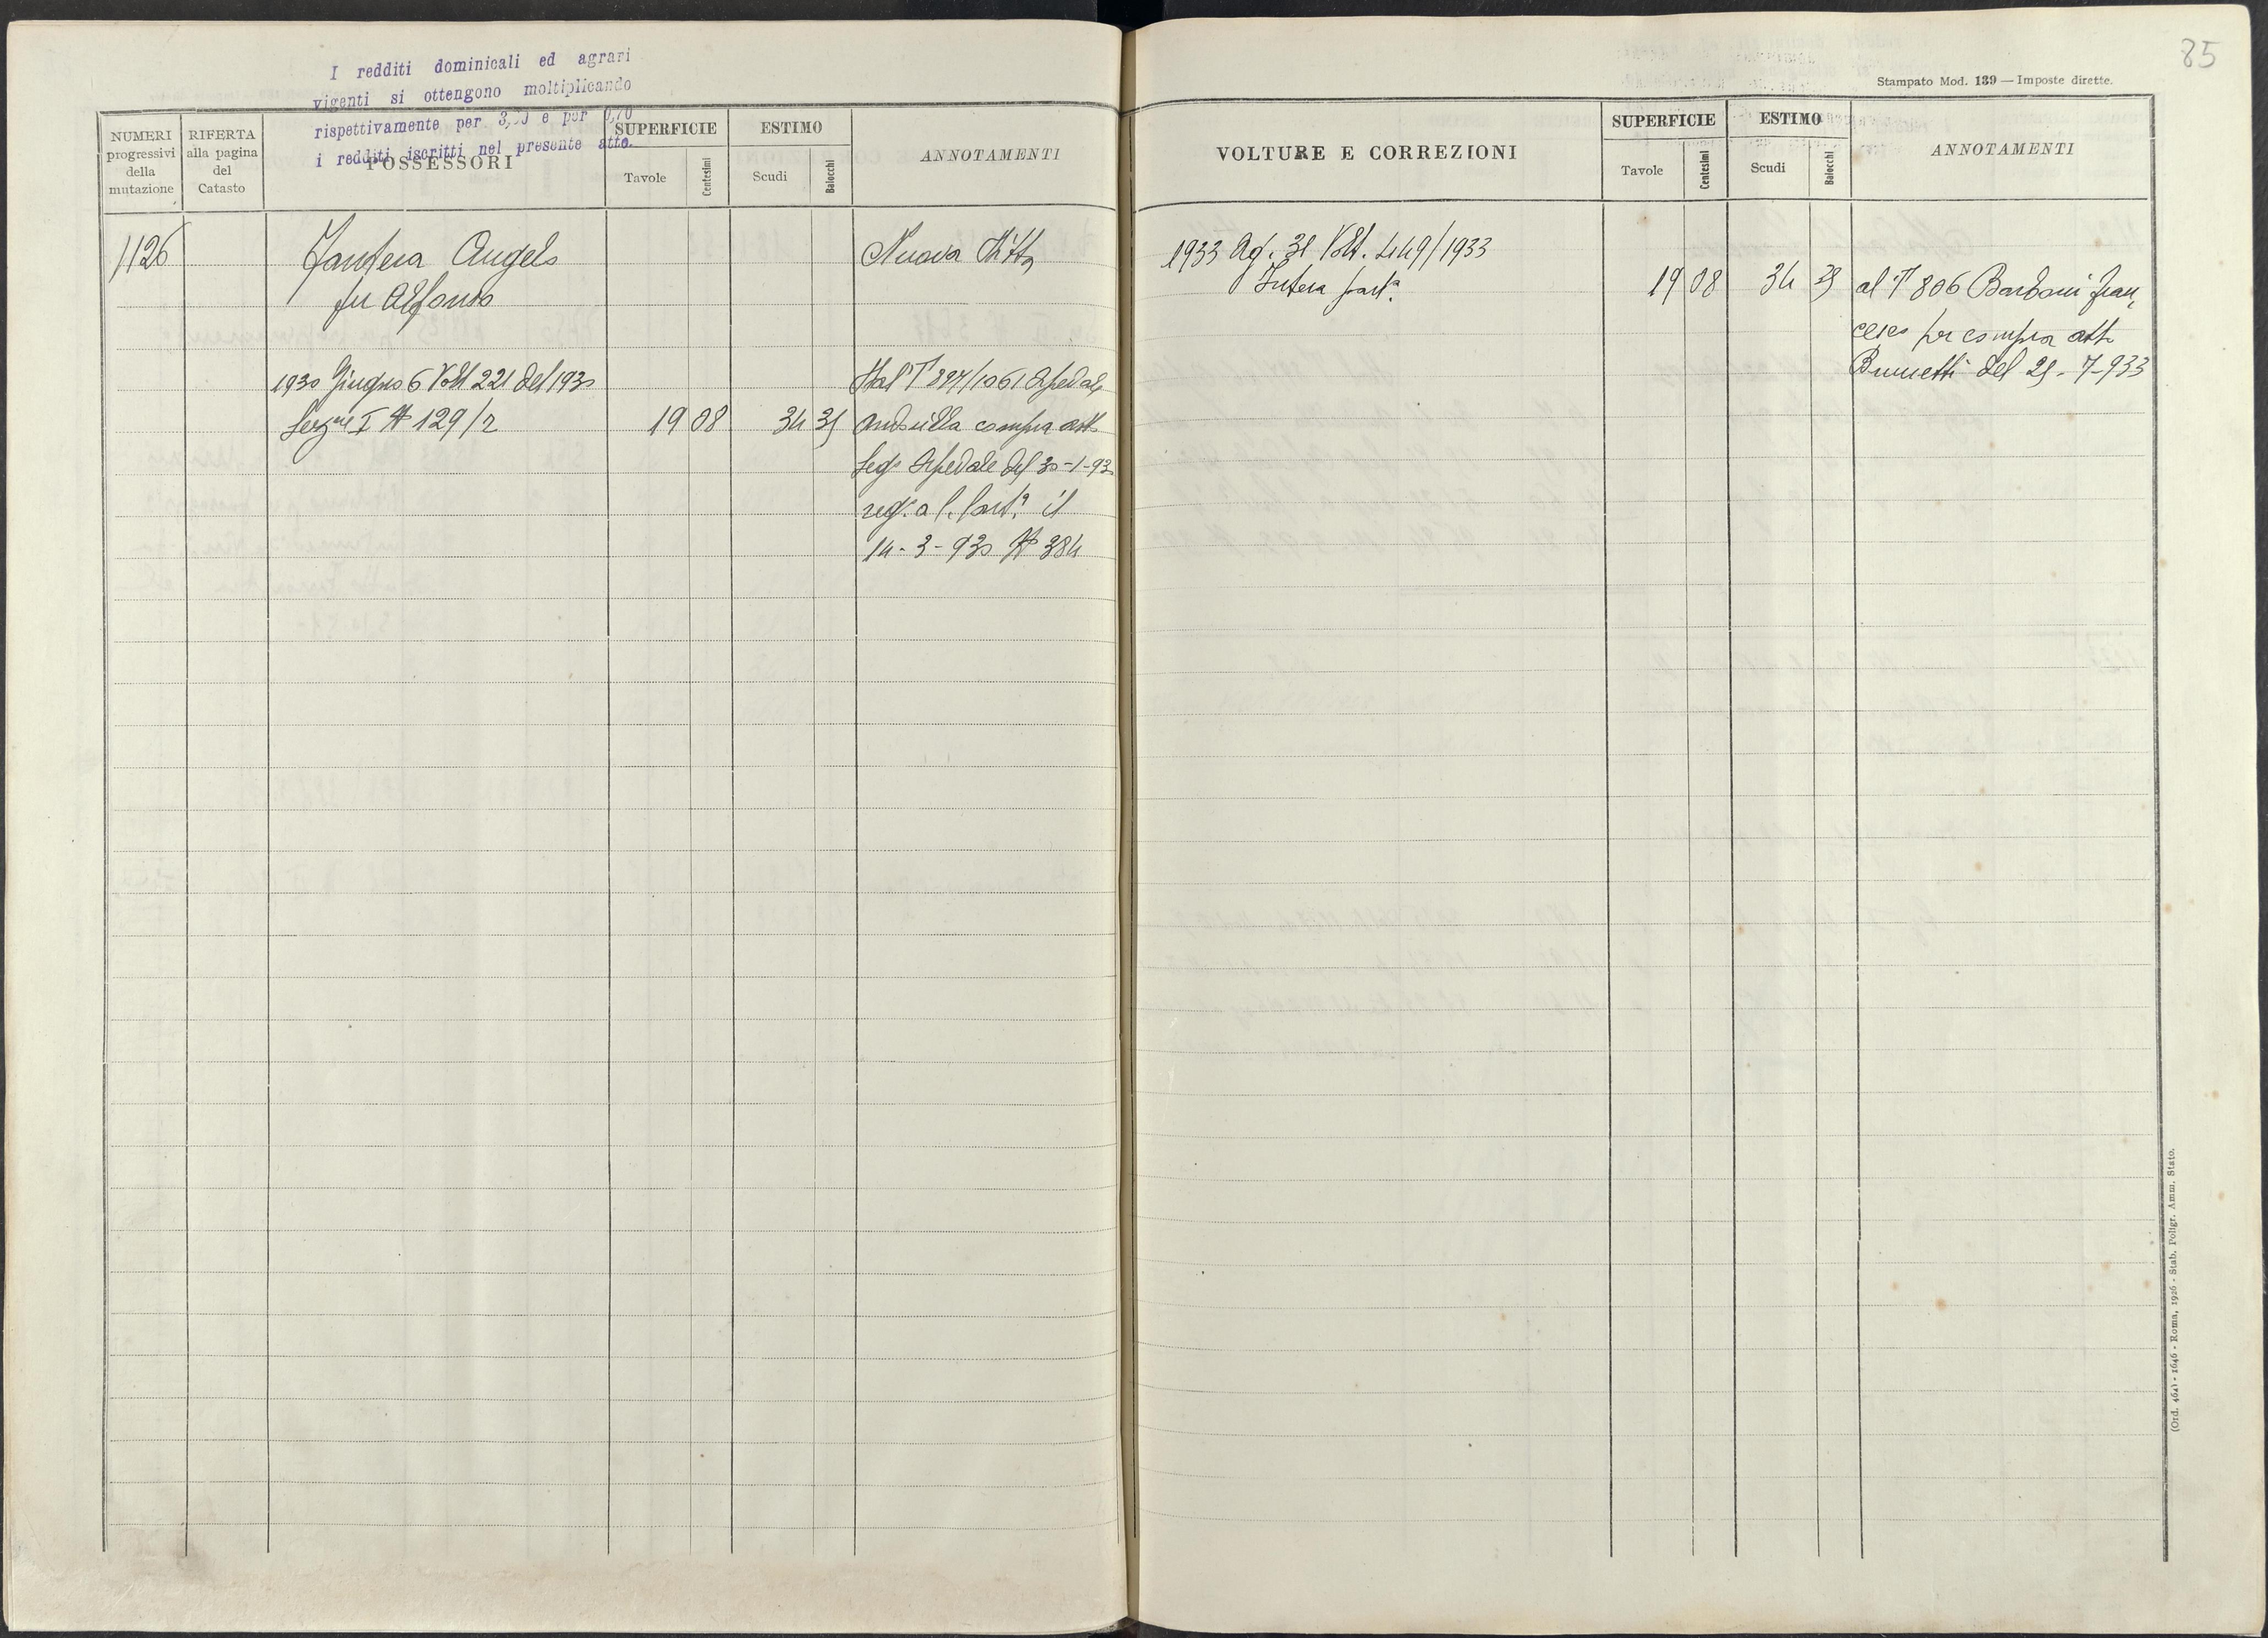 I redditi dominicali ed agrari
vigenti si ottengono moltiplicando
rispettivamente per 3, e per 0,70
i redditi iscritti nel presente atto.
NUMERI progressivi della mutazione
RIFERTA alla pagina del Catasto
POSSESSORI
SUPERFICIE
Tavole
Centesimi
ESTIMO
Scudi
Baiocchi
ANNOTAMENTI
1126
Angelo
Nuova Ditta
fu Alfonso
1930 Giugno 6 Volt 221 del 1930
Dal T 897/1061 Ospedale
Sez.ne I N 129/2
19 08
34 35
compra att.
Ospedale del 30-1-930
reg. a il
14-3-930 N 384
85
Stampato Mod. 139 — Imposte dirette.
VOLTURE E CORREZIONI
SUPERFICIE
Tavole
Centesimi
ESTIMO
Scudi
Baiocchi
ANNOTAMENTI
1933 Ag. 31 Volt. 449/1933
Intera part.a
19 08
34 35
al T 806 Barboni Fran,
cesco per compra att.
Brunetti del 25-7-933
(Ord. 464) - 1646 - Roma, 1926 - Stab. Poligr. Amm. Stato.